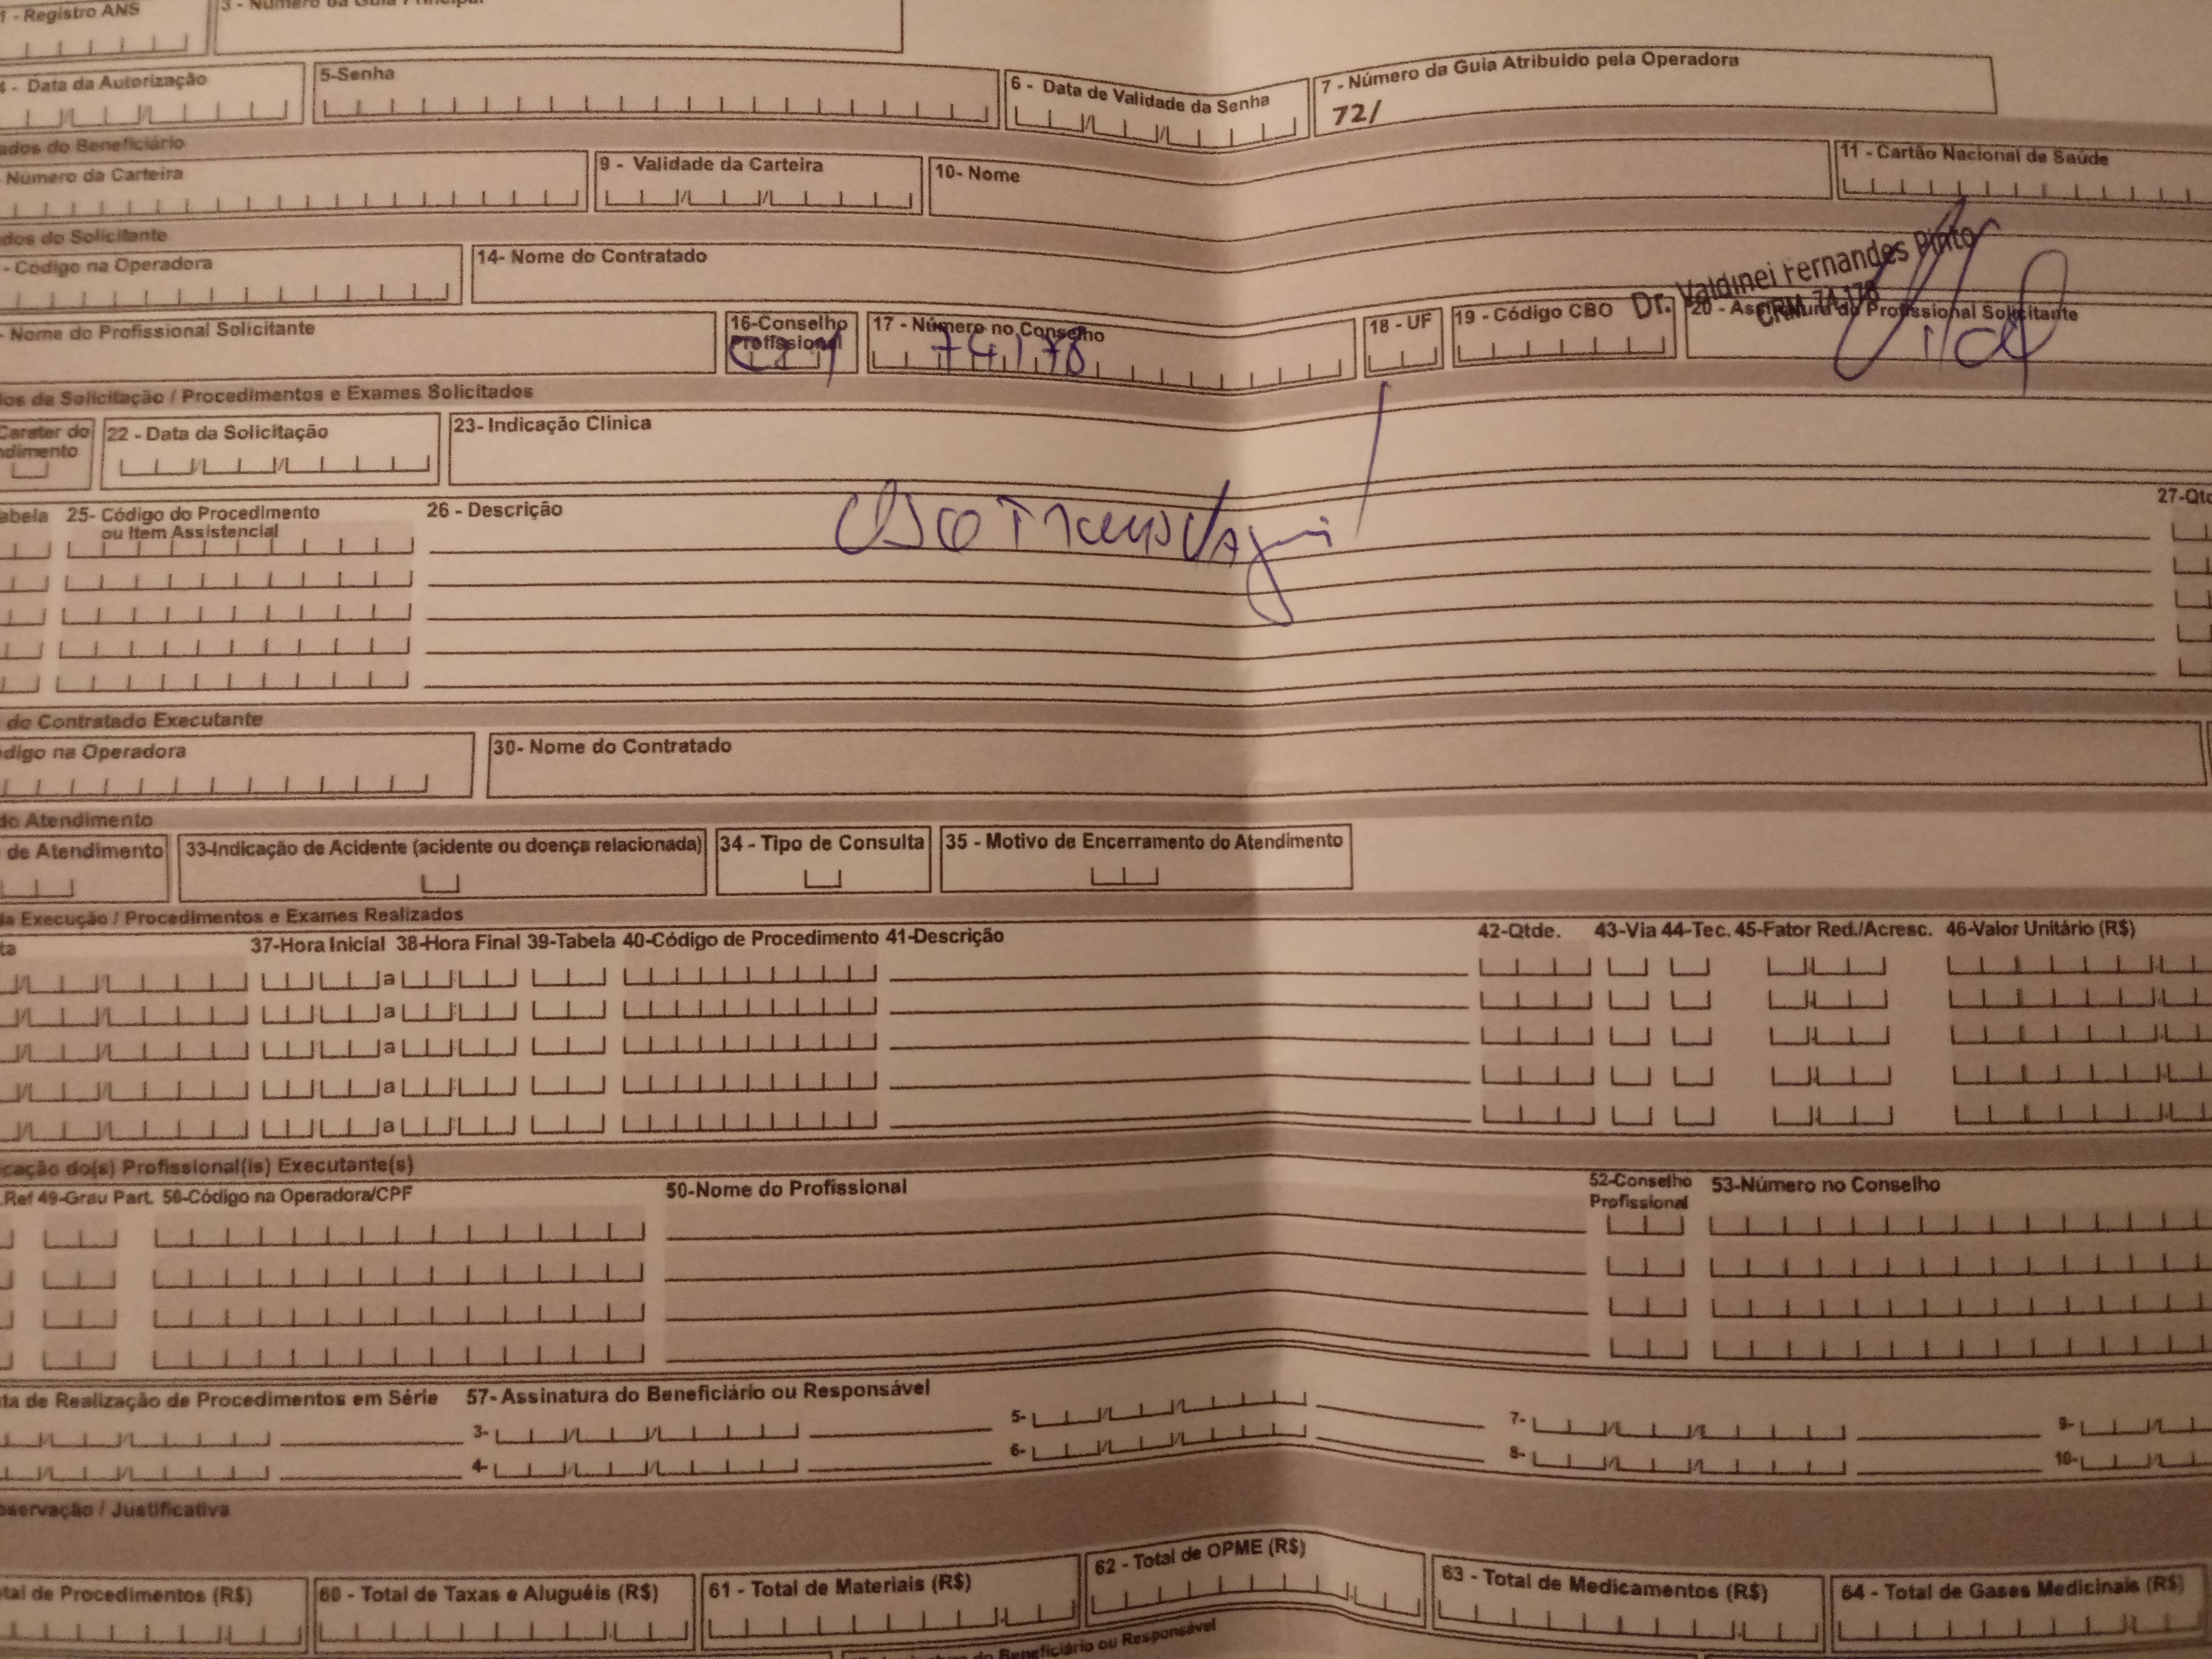 1 - Registro ANS
4 - Data da Autorização 5-Senha 6 - Data de Validade da Senha 7 - Número da Guia Atribuido pela Operadora
72/
ados do Beneficiário
Número da Carteira 9 - Validade da Carteira 10- Nome 11 - Cartão Nacional de Saúde
dos do Solicitante
- Código na Operadora 14- Nome do Contratado
Dr. Valdinei Fernandes Pinto
CRM 74.178
- Nome do Profissional Solicitante 16-Conselho Profissional 17 - Número no Conselho 18 - UF 19 - Código CBO 20 - Assinatura do Profissional Solicitante
74178
dos da Solicitação / Procedimentos e Exames Solicitados
Carater do
ndimento
22 - Data da Solicitação 23- Indicação Clinica
abela 25- Código do Procedimento
ou Item Assistencial
26 - Descrição 27-Qtd
do Contratado Executante
digo na Operadora 30- Nome do Contratado
do Atendimento
de Atendimento 33-Indicação de Acidente (acidente ou doença relacionada) 34 - Tipo de Consulta 35 - Motivo de Encerramento do Atendimento
da Execução / Procedimentos e Exames Realizados
ta 37-Hora Inicial 38-Hora Final 39-Tabela 40-Código de Procedimento 41-Descrição 42-Qtde. 43-Via 44-Tec. 45-Fator Red./Acresc. 46-Valor Unitário (R$)
a
a
a
a
a
icação do(s) Profissional(is) Executante(s)
.Ref 49-Grau Part. 50-Código na Operadora/CPF 50-Nome do Profissional 52-Conselho Profissional 53-Número no Conselho
ta de Realização de Procedimentos em Série 57- Assinatura do Beneficiário ou Responsável
3- 5- 7- 9-
4- 6- 8- 10-
bservação / Justificativa
tal de Procedimentos (R$) 60 - Total de Taxas e Aluguéis (R$) 61 - Total de Materiais (R$) 62 - Total de OPME (R$) 63 - Total de Medicamentos (R$) 64 - Total de Gases Medicinais (R$)
do Beneficiário ou Responsável